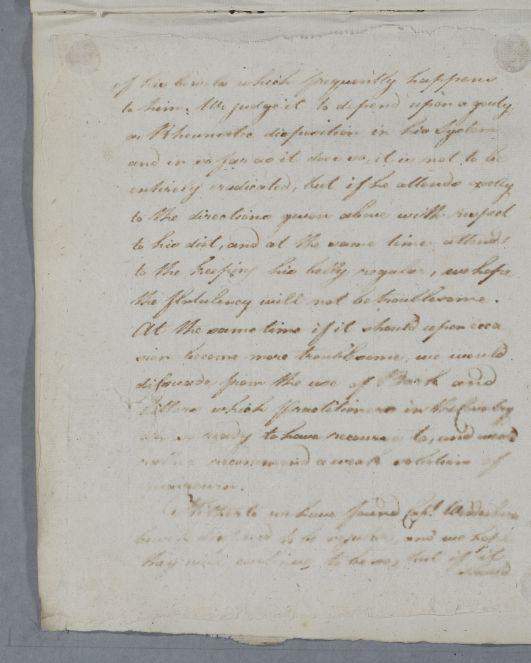 of his bowels which frequently happens
to him. We judge it to depend upon a gouty
or Rheumatic disposition in his System
and in so far as it does so, it is not to be
entirely eradicated, but if he attends exactly
to the directions given above with respect
to his diet, and at the same time attends
to the keeping his belly regular, we hope
the flatulency will not be troublesome.
At the same time if it should upon occa
sion become more troublesome, we would
disswade from the use of Bark and
Bitters which Practitioners in the Country
are so ready to have recourse to, and would
rather recommend a weak solution of
Hitherto we have found Capt.
to be regular and we hope
they will continue to be so, but if it
should